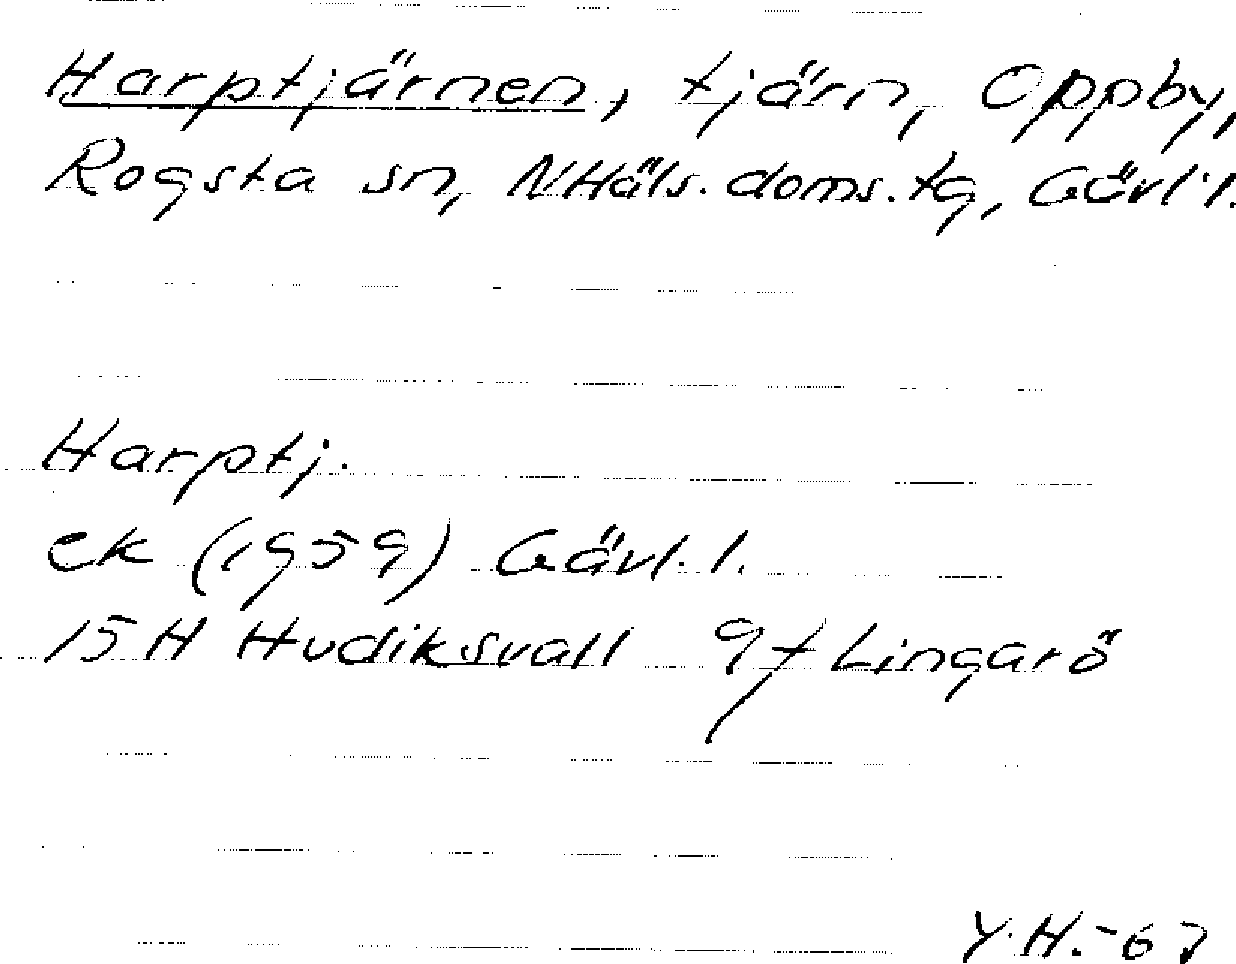 Harptjärnen, tjärn, Oppby,
Rogsta sn, NHäls. doms. tg, Gävl. l.
Harptj.
ek (1959) Gävl. l.
15 H Hudiksvall 9f Lingarö
Y.H.-67